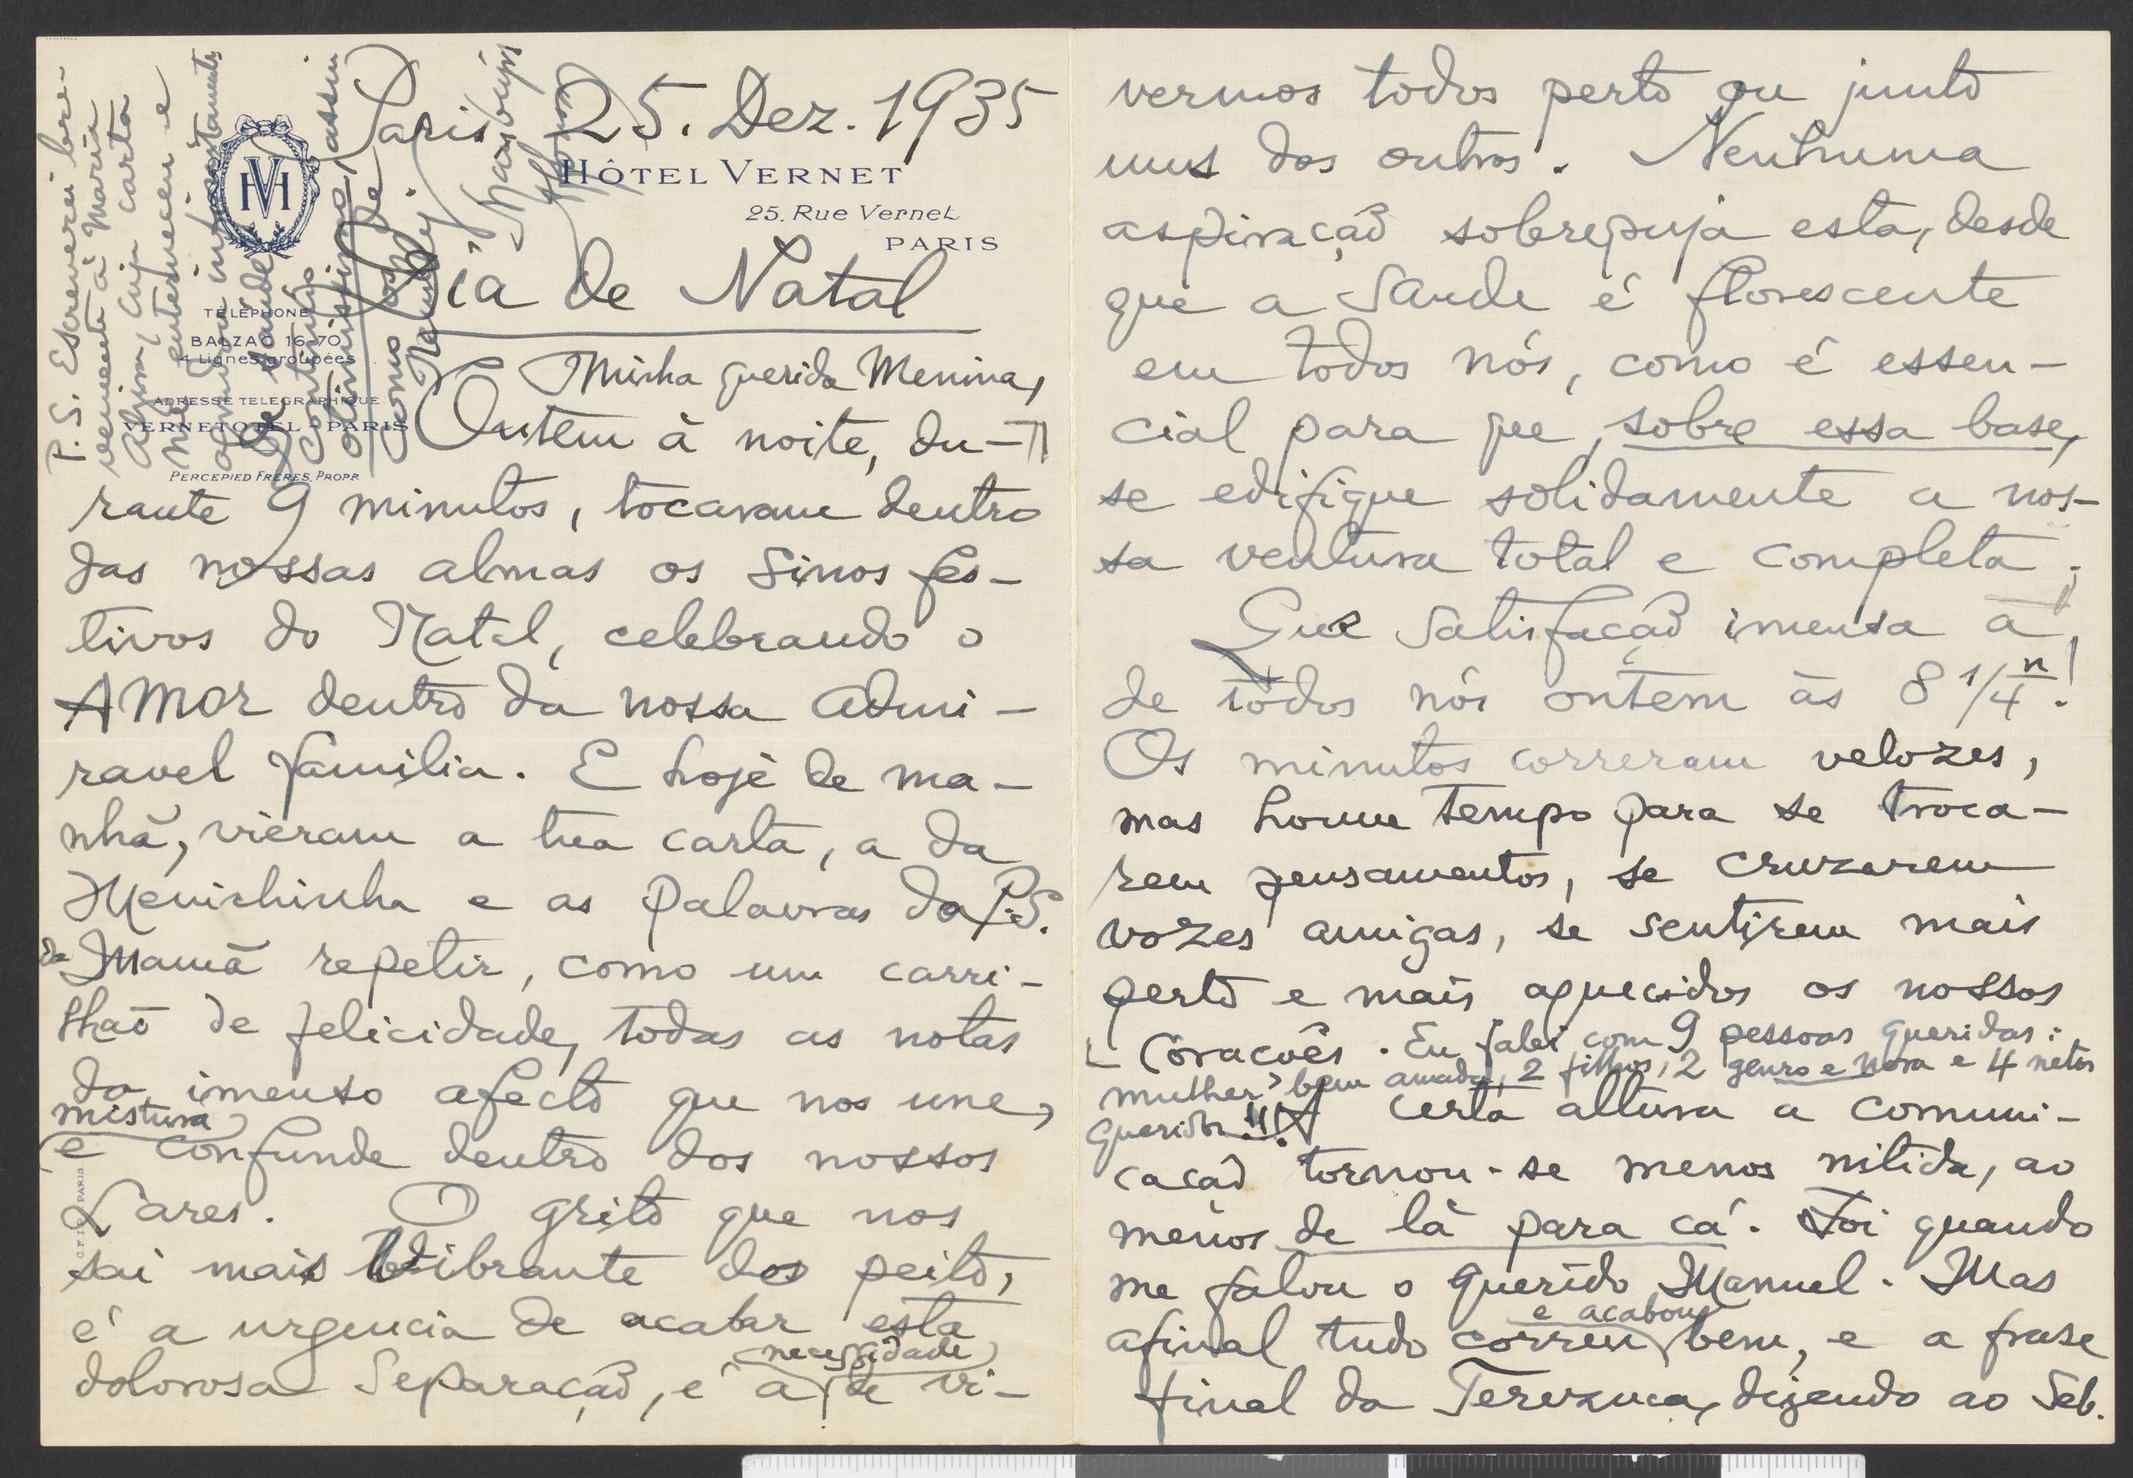 Paris 25. Dez. 1935
HÔTEL VERNET
25. Rue Vernet
PARIS
HV
TÉLÉPHONE
BALZAC 16-70
4 Lignes groupées
ADRESSE TÉLÉGRAPHIQUE
VERNETOTEL-PARIS
PERCEPIED FRÈRES, PROPR
Dia de Natal
Minha querida Menina,
Ontem à noite, du-
rante 9 minutos, tocaram dentro
das nossas almas os sinos fes-
tivos do Natal, celebrando o
AMOR dentro da nossa admi-
ravel familia. E hoje de ma-
nhã, vieram a tua carta, a da
Menichinha e as palavras do P.S.
da Mamã repetir, como um carri-
lhão de felicidade, todas as notas
do imenso afecto que nos une,
mistura
e confunde dentro dos nossos
Lares. O grito que nos
sai mais vibrante do peito,
é a urgencia de acabar esta
dolorosa separação, é a necessidade de vi-
vermos todos perto ou junto
uns dos outros. Nenhuma
aspiração sobrepuja esta, desde
que a saude é florescente
em todos nós, como é essen-
cial para que, sobre essa base,
se edifique solidamente a nos-
sa ventura total e completa.
Que satisfação imensa a
de todos nós ontem às 8 1/4 n!
Os minutos correram velozes,
mas houve tempo para se troca-
rem pensamentos, se cruzarem
vozes amigas, se sentirem mais
perto e mais aquecidos os nossos
corações. Eu falei com 9 pessoas queridas:
mulher bem amada, 2 filhos, 2 genro e nora e 4 netos
queridos!!! A certa altura a comuni-
cação tornou-se menos nitida, ao
menos de lá para cá. Foi quando
me falou o querido Manuel. Mas
afinal tudo correu e acabou bem, e a frase
final da Terezuca, dizendo ao Seb.
P.S. Escreverei bre-
vemente à Maria
cuja carta
me enterneceu e
de saude
conteúdo
optimissimo, assim
como os de
Affonso